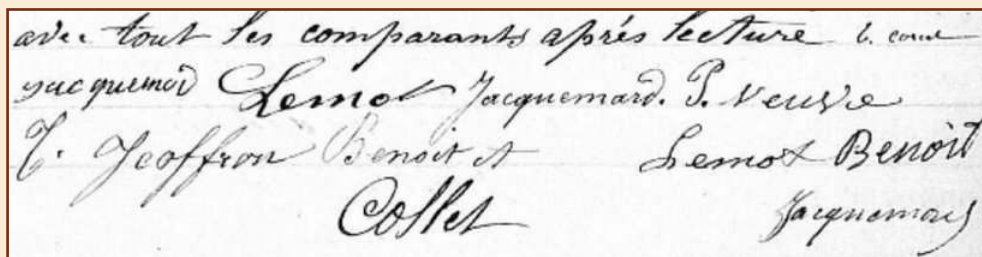 avec tout les comparants aprés lecture
Jacquemard Lemot Jacquemard. P. Neuve
T. Jeoffron Benoit et Lemot Benoit
Collet Jacquemard